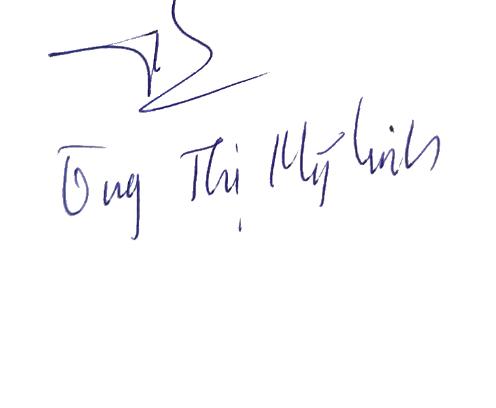 Ông Thị Mỹ Linh